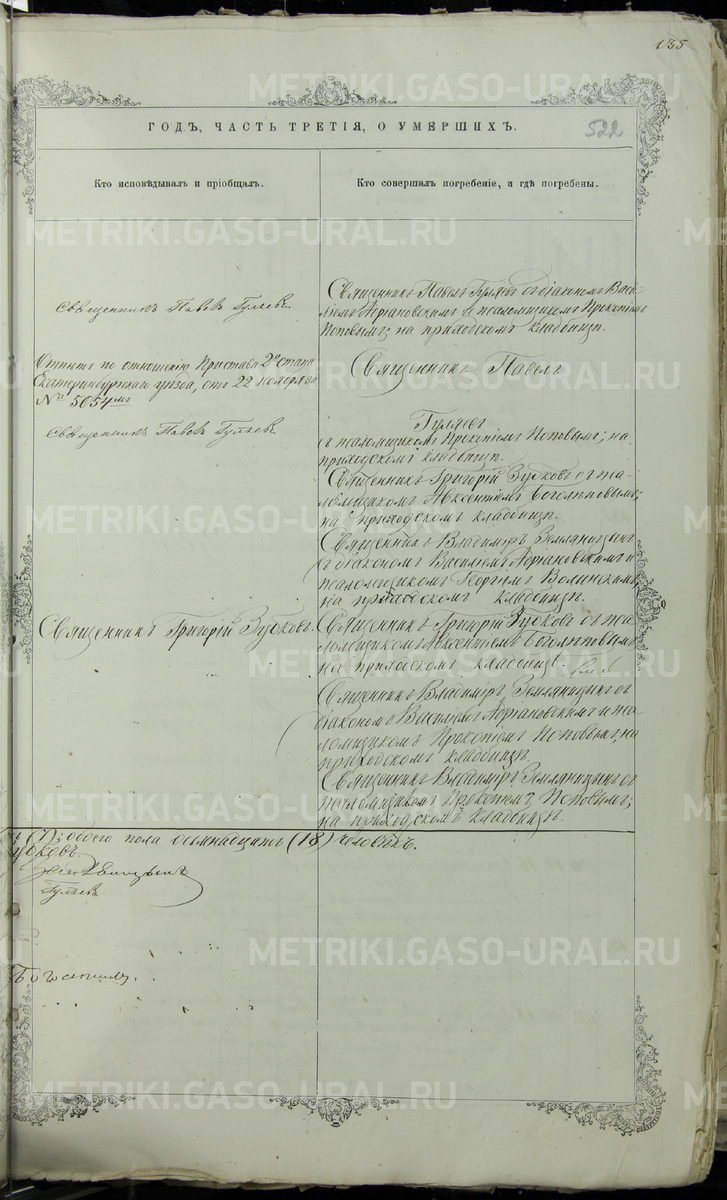 135
ГОДЪ, ЧАСТЬ ТРЕТІЯ, О УМЕРШИХЪ.
522
Кто исповѣдывалъ и пріобщалъ.
Кто совершалъ погребеніе, и гдѣ погребены.
Священникъ Павелъ Гуляевъ.
Отпѣтъ по отношенію Пристава 2го стана
Екатеринбургскаго уѣзда, отъ 22 ноября за
№ 5054мъ
Священникъ Павелъ Гуляевъ.
Священникъ Григорій Зубковъ.
Священникъ Павелъ Гуляевъ съ діакономъ Васи-
ліемъ Адріановскимъ и псаломщикомъ Прокопіемъ
Поповымъ; на приходскомъ кладбищѣ.
Священникъ Павелъ
Гуляевъ
съ псаломщикомъ Прокопіемъ Поповымъ; на
приходскомъ кладбищѣ.
Священникъ Григорій Зубковъ съ пса-
ломщикомъ Авксентіемъ Боголѣповымъ;
на приходскомъ кладбищѣ.
Священникъ Владиміръ Земляницынъ
съ діакономъ Василіемъ Адріановскимъ и
псаломщикомъ Георгіемъ Волынскимъ;
на приходскомъ кладбищѣ.
Священникъ Григорій Зубковъ съ пса-
ломщикомъ Авксентіемъ Боголѣповымъ;
на приходскомъ кладбищѣ.
Священникъ Владиміръ Земляницынъ съ
діакономъ Василіемъ Адріановскимъ и пса-
ломщикомъ Прокопіемъ Поповымъ; на
приходскомъ кладбищѣ.
Священникъ Владиміръ Земляницынъ съ
псаломщикомъ Прокопіемъ Поповымъ;
на приходскомъ кладбищѣ.
(7); обоего пола осьмнадцать (18) человѣкъ.
Гуляевъ
METRIKI.GASO-URAL.RU